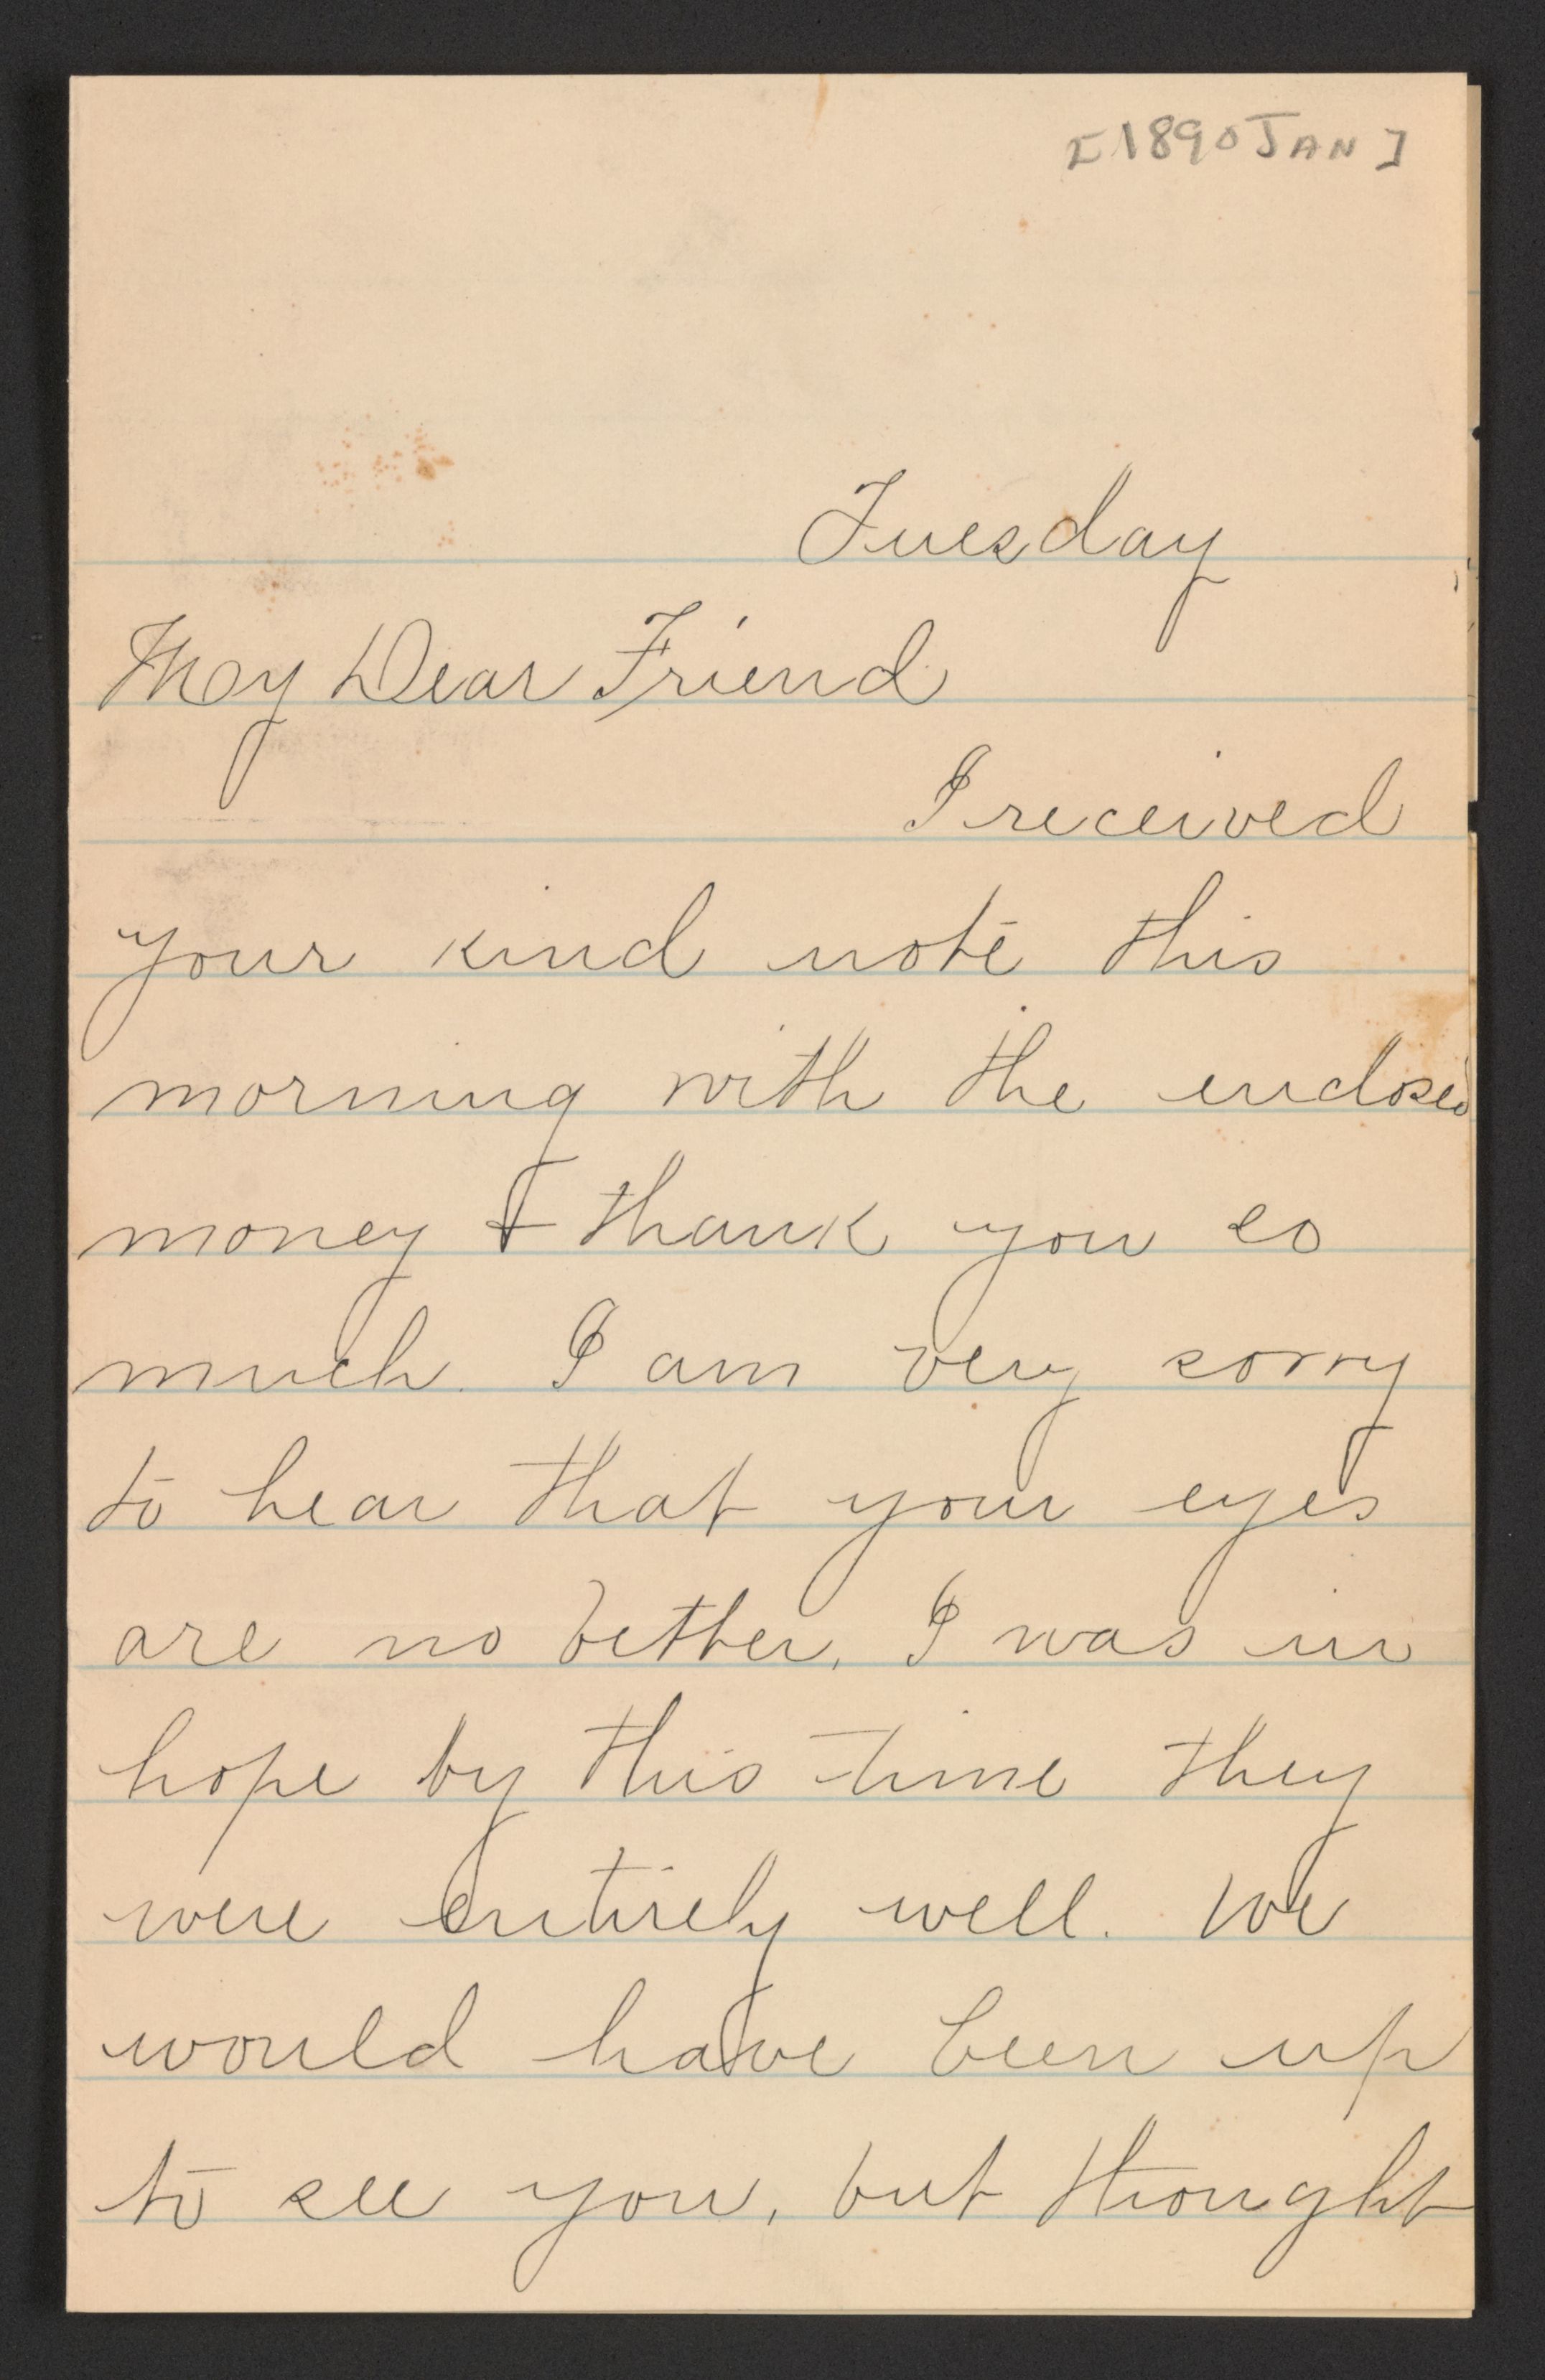 [1890 JAN]
Tuesday
My Dear Friend
I received
your kind note this
morning with the enclosed
money & thank you so
much. I am very sorry
to hear that your eyes
are no better, I was in
hope by this time they
were entirely well. We
would have been up
to see you, but thought